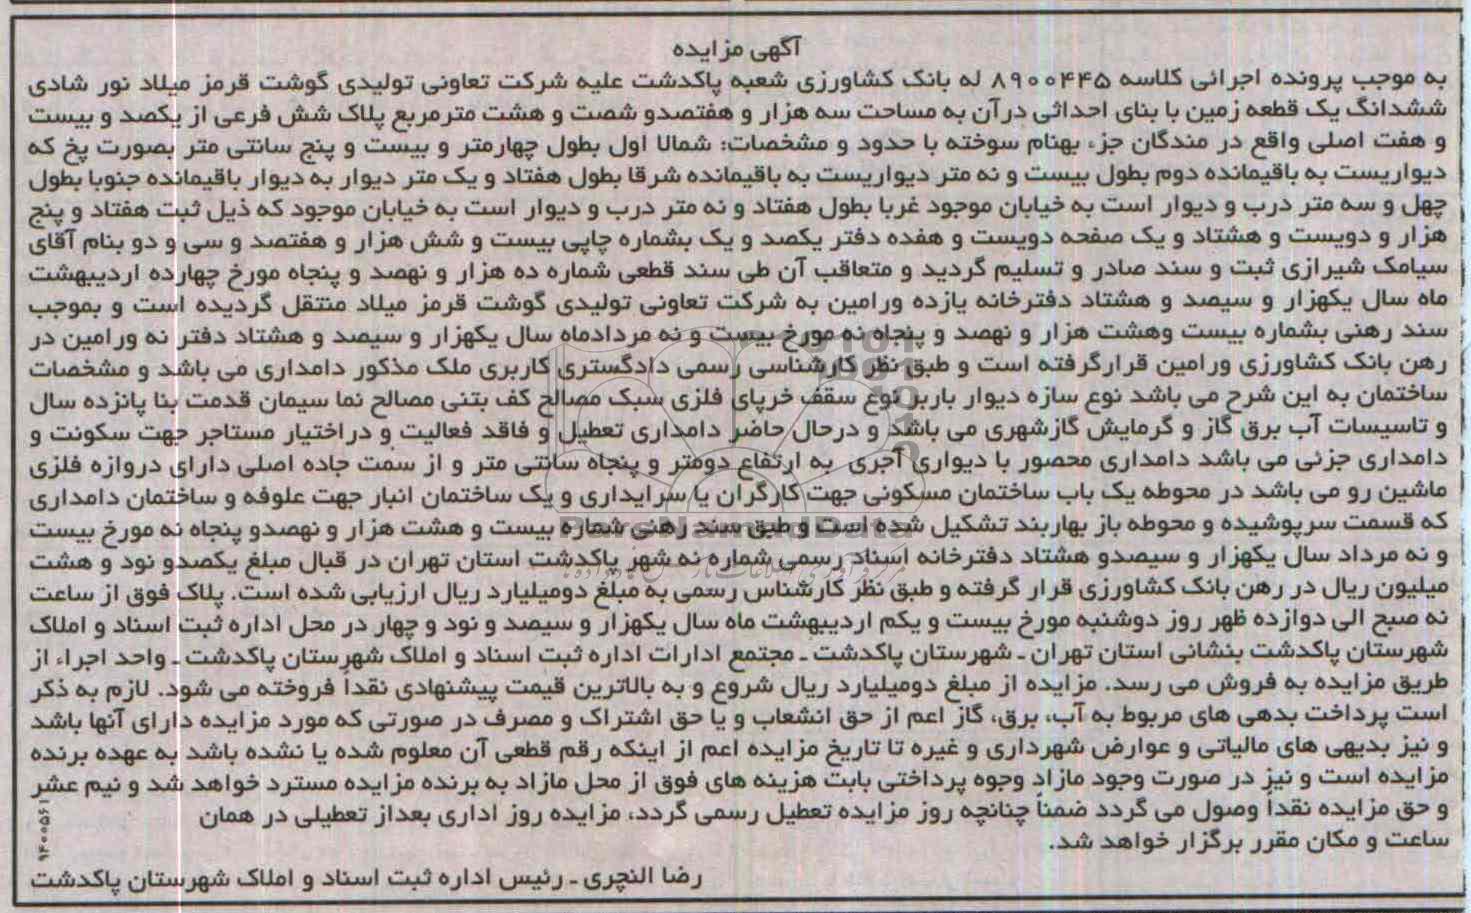 آگهی مزایده
به موجب پرونده اجرائی کلاسه ۸۹۰۰۴۴۵ له بانک کشاورزی شعبه پاکدشت علیه شرکت تعاونی تولیدی گوشت قرمز میلاد نور شادی
ششدانگ یک قطعه زمین با بنای احداثی درآن به مساحت سه هزار و هفتصدو شصت و هشت مترمربع پلاک شش فرعی از یکصد و بیست
و هفت اصلی واقع در مندگان جزء بهنام سوخته با حدود و مشخصات: شمالا اول بطول چهارمتر و بیست و پنج سانتی متر بصورت پخ که
دیواریست به باقیمانده دوم بطول بیست و نه متر دیواریست به باقیمانده شرقا بطول هفتاد و یک متر دیوار به دیوار باقیمانده جنوبا بطول
چهل و سه متر درب و دیوار است به خیابان موجود غربا بطول هفتاد و نه متر درب و دیوار است به خیابان موجود که ذیل ثبت هفتاد و پنج
هزار و دویست و هشتاد و یک صفحه دویست و هفده دفتر یکصد و یک بشماره چاپی بیست و شش هزار و هفتصد و سی و دو بنام آقای
سیامک شیرازی ثبت و سند صادر و تسلیم گردید و متعاقب آن طی سند قطعی شماره ده هزار و نهصد و پنجاه مورخ چهارده اردیبهشت
ماه سال یکهزار و سیصد و هشتاد دفترخانه یازده ورامین به شرکت تعاونی تولیدی گوشت قرمز میلاد منتقل گردیده است و بموجب
سند رهنی بشماره بیست وهشت هزار و نهصد و پنجاه نه مورخ بیست و نه مردادماه سال یکهزار و سیصد و هشتاد دفتر نه ورامین در
رهن بانک کشاورزی ورامین قرارگرفته است و طبق نظر کارشناسی رسمی دادگستری کاربری ملک مذکور دامداری می باشد و مشخصات
ساختمان به این شرح می باشد نوع سازه دیوار باربر نوع سقف خرپای فلزی سبک مصالح کف بتنی مصالح نما سیمان قدمت بنا پانزده سال
و تاسیسات آب برق گاز و گرمایش گازشهری می باشد و درحال حاضر دامداری تعطیل و فاقد فعالیت و دراختیار مستاجر جهت سکونت و
دامداری جزئی می باشد دامداری محصور با دیواری آجری به ارتفاع دومتر و پنجاه سانتی متر و از سمت جاده اصلی دارای دروازه فلزی
ماشین رو می باشد در محوطه یک باب ساختمان مسکونی جهت کارگران یا سرایداری و یک ساختمان انبار جهت علوفه و ساختمان دامداری
که قسمت سرپوشیده و محوطه باز بهاربند تشکیل شده است و طبق سند رهنی شماره بیست و هشت هزار و نهصدو پنجاه نه مورخ بیست
و نه مرداد سال یکهزار و سیصدو هشتاد دفترخانه اسناد رسمی شماره نه شهر پاکدشت استان تهران در قبال مبلغ یکصدو نود و هشت
میلیون ریال در رهن بانک کشاورزی قرار گرفته و طبق نظر کارشناس رسمی به مبلغ دومیلیارد ریال ارزیابی شده است. پلاک فوق از ساعت
نه صبح الی دوازده ظهر روز دوشنبه مورخ بیست و یکم اردیبهشت ماه سال یکهزار و سیصد و نود و چهار در محل اداره ثبت اسناد و املاک
شهرستان پاکدشت بنشانی استان تهران ـ شهرستان پاکدشت ـ مجتمع ادارات اداره ثبت اسناد و املاک شهرستان پاکدشت ـ واحد اجراء از
طریق مزایده به فروش می رسد. مزایده از مبلغ دومیلیارد ریال شروع و به بالاترین قیمت پیشنهادی نقداً فروخته می شود. لازم به ذکر
است پرداخت بدهی های مربوط به آب، برق، گاز اعم از حق انشعاب و یا حق اشتراک و مصرف در صورتی که مورد مزایده دارای آنها باشد
و نیز بدیهی های مالیاتی و عوارض شهرداری و غیره تا تاریخ مزایده اعم از اینکه رقم قطعی آن معلوم شده یا نشده باشد به عهده برنده
مزایده است و نیز در صورت وجود مازاد وجوه پرداختی بابت هزینه های فوق از محل مازاد به برنده مزایده مسترد خواهد شد و نیم عشر
و حق مزایده نقداً وصول می گردد ضمناً چنانچه روز مزایده تعطیل رسمی گردد، مزایده روز اداری بعداز تعطیلی در همان
ساعت و مکان مقرر برگزار خواهد شد.
۹۴۰۰۵۶۱
رضا النچری ـ رئیس اداره ثبت اسناد و املاک شهرستان پاکدشت
ParsNamadData